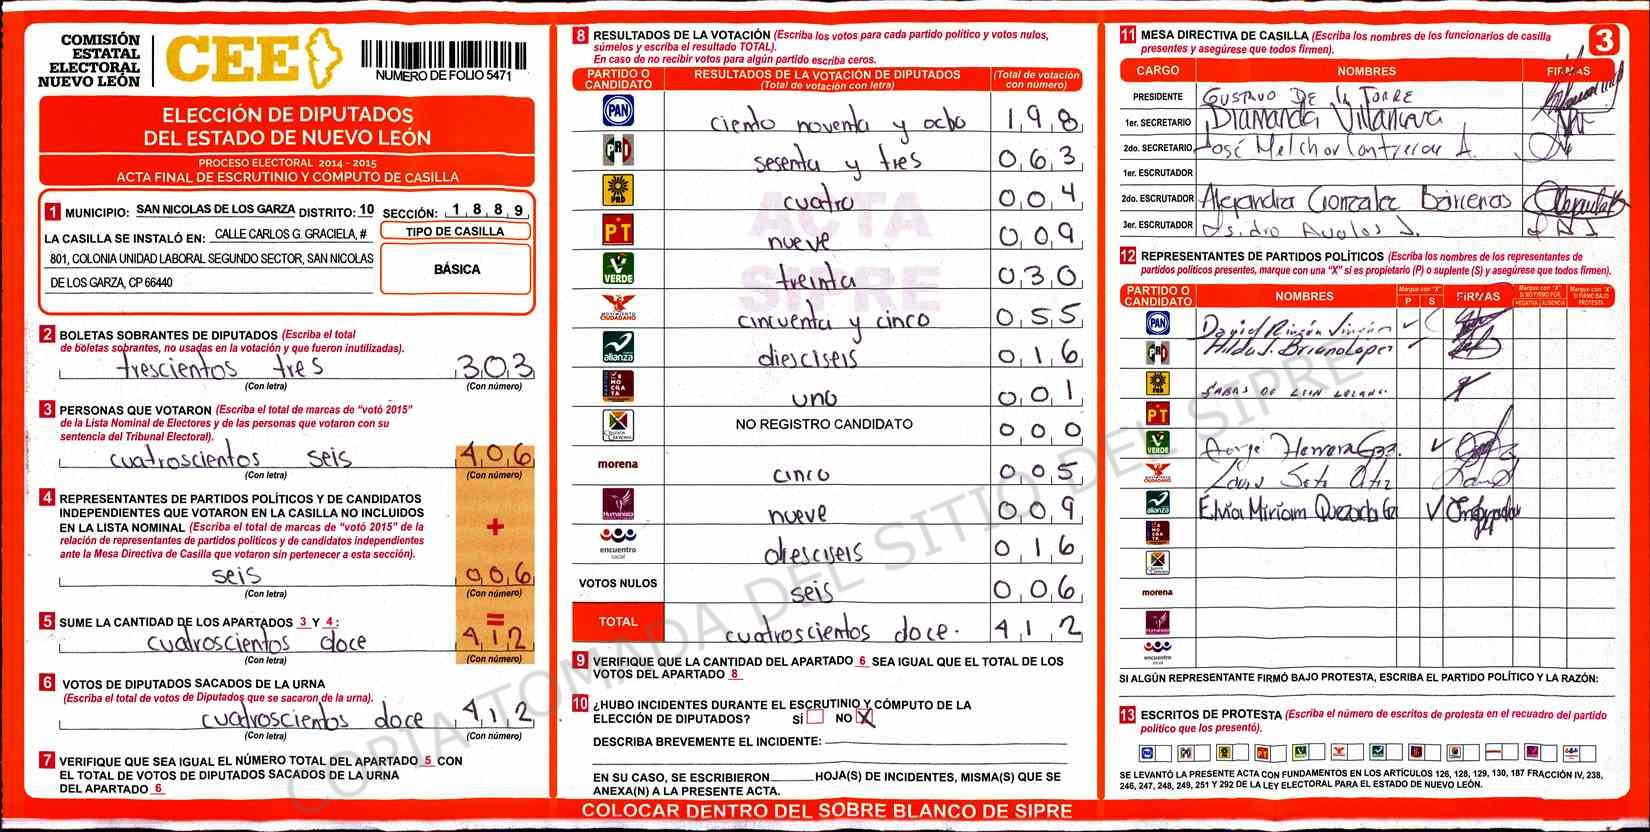 COMISIÓN
ESTATAL
ELECTORAL
NUEVO LEÓN
CEE
NUMERO DE FOLIO 5471
ELECCIÓN DE DIPUTADOS
DEL ESTADO DE NUEVO LEÓN
PROCESO ELECTORAL 2014 - 2015
ACTA FINAL DE ESCRUTINIO Y CÓMPUTO DE CASILLA
1 MUNICIPIO: SAN NICOLAS DE LOS GARZA DISTRITO: 10 SECCIÓN: 1889
LA CASILLA SE INSTALÓ EN: CALLE CARLOS G. GRACIELA, #
801, COLONIA UNIDAD LABORAL SEGUNDO SECTOR, SAN NICOLAS
DE LOS GARZA, CP 66440
TIPO DE CASILLA
BÁSICA
2 BOLETAS SOBRANTES DE DIPUTADOS (Escriba el total
de boletas sobrantes, no usadas en la votación y que fueron inutilizadas).
trescientos tres 303
(Con letra) (Con número)
3 PERSONAS QUE VOTARON (Escriba el total de marcas de “votó 2015”
de la Lista Nominal de Electores y de las personas que votaron con su
sentencia del Tribunal Electoral).
cuatroscientos seis 406
(Con letra) (Con número)
4 REPRESENTANTES DE PARTIDOS POLÍTICOS Y DE CANDIDATOS
INDEPENDIENTES QUE VOTARON EN LA CASILLA NO INCLUIDOS
EN LA LISTA NOMINAL (Escriba el total de marcas de “votó 2015” de la
relación de representantes de partidos políticos y de candidatos independientes
ante la Mesa Directiva de Casilla que votaron sin pertenecer a esta sección).
+
seis 006
(Con letra) (Con número)
5 SUME LA CANTIDAD DE LOS APARTADOS 3 Y 4:
=
cuatroscientos doce 412
(Con letra) (Con número)
6 VOTOS DE DIPUTADOS SACADOS DE LA URNA
(Escriba el total de votos de Diputados que se sacaron de la urna).
cuatroscientos doce 412
(Con letra) (Con número)
7 VERIFIQUE QUE SEA IGUAL EL NÚMERO TOTAL DEL APARTADO 5 CON
EL TOTAL DE VOTOS DE DIPUTADOS SACADOS DE LA URNA
DEL APARTADO 6
8 RESULTADOS DE LA VOTACIÓN (Escriba los votos para cada partido político y votos nulos,
súmelos y escriba el resultado TOTAL).
En caso de no recibir votos para algún partido escriba ceros.
PARTIDO O CANDIDATO RESULTADOS DE LA VOTACIÓN DE DIPUTADOS (Total de votación con letra) (Total de votación con número)
PAN ciento noventa y ocho 198
PRI sesenta y tres 063
PRD cuatro 004
PT nueve 009
VERDE treinta 030
MOVIMIENTO CIUDADANO cincuenta y cinco 055
alianza diesciseis 016
DEMÓCRATA uno 001
NO REGISTRO CANDIDATO 000
morena cinco 005
Humanista nueve 009
encuentro social diesciseis 016
VOTOS NULOS seis 006
TOTAL cuatroscientos doce. 412
9 VERIFIQUE QUE LA CANTIDAD DEL APARTADO 6 SEA IGUAL QUE EL TOTAL DE LOS
VOTOS DEL APARTADO 8
10 ¿HUBO INCIDENTES DURANTE EL ESCRUTINIO Y CÓMPUTO DE LA
ELECCIÓN DE DIPUTADOS? SÍ NO X
DESCRIBA BREVEMENTE EL INCIDENTE:
EN SU CASO, SE ESCRIBIERON HOJA(S) DE INCIDENTES, MISMA(S) QUE SE
ANEXA(N) A LA PRESENTE ACTA.
COLOCAR DENTRO DEL SOBRE BLANCO DE SIPRE
ACTA
SIPRE
COPIA TOMADA DEL SITIO DEL SIPRE
11 MESA DIRECTIVA DE CASILLA (Escriba los nombres de los funcionarios de casilla
presentes y asegúrese que todos firmen).
3
CARGO NOMBRES FIRMAS
PRESIDENTE GUSTAVO DE LA TORRE
1er. SECRETARIO Diamanda Villanueva
2do. SECRETARIO José Melchor Contreras A.
1er. ESCRUTADOR
2do. ESCRUTADOR Alejandra Gonzalez Bárcenas
3er. ESCRUTADOR Isidro Avalos J.
12 REPRESENTANTES DE PARTIDOS POLÍTICOS (Escriba los nombres de los representantes de
partidos políticos presentes, marque con una “X” si es propietario (P) o suplente (S) y asegúrese que todos firmen).
PARTIDO O CANDIDATO NOMBRES Marque con “X” P S FIRMAS Marque con “X” SI NO FIRMÓ POR: NEGATIVA AUSENCIA Marque con “X” SI FIRMÓ BAJO PROTESTA
PAN David Rincón
PRI Hilda J. Briano Lopez
PRD SABAS DE LEON
PT
VERDE Jorge Herrera Gzz.
MOVIMIENTO CIUDADANO Soto
alianza Elvia Miriam Quezada
morena
Humanista
encuentro social
SI ALGÚN REPRESENTANTE FIRMÓ BAJO PROTESTA, ESCRIBA EL PARTIDO POLÍTICO Y LA RAZÓN:
13 ESCRITOS DE PROTESTA (Escriba el número de escritos de protesta en el recuadro del partido
político que los presentó).
SE LEVANTÓ LA PRESENTE ACTA CON FUNDAMENTOS EN LOS ARTÍCULOS 126, 128, 129, 130, 187 FRACCIÓN IV, 238,
246, 247, 248, 249, 251 Y 292 DE LA LEY ELECTORAL PARA EL ESTADO DE NUEVO LEÓN.